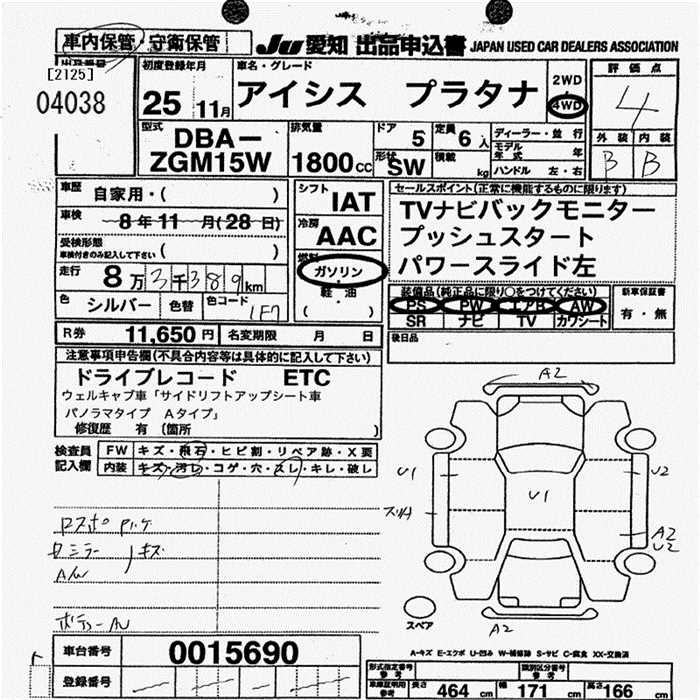 車内保管・守衛保管 JU愛知 出品申込書 JAPAN USED CAR DEALERS ASSOCIATION
出品番号 初度登録年月 車名・グレード 2WD 評価点
[2125]
04038 25年11月 アイシス プラタナ 4WD 4
型式 排気量 ドア 5 定員 6人 ディーラー・並行 外装 内装
DBA－ZGM15W 1800cc 形状 SW 積載 kg モデル年式 年 B B
ハンドル 左・右
車歴 自家用・( ) シフト IAT セールスポイント(正常に機能するものに限ります)
車検 8年11月(28日) 冷房 AAC TVナビバックモニター
受検形態 プッシュスタート
車検付きのみ記入して下さい( ) 燃料 ガソリン パワースライド左
走行 8万3千389km 軽油
色 シルバー 色替 色コード 1F7 ( )
装備品(純正品に限り○をつけてください) 新車保証書
PS PW エアB AW 有・無
SR ナビ TV カワシート
R券 11,650円 名変期限 月 日 後日品
注意事項申告欄(不具合内容等は具体的に記入して下さい)
ドライブレコード ETC
ウェルキャブ車「サイドリフトアップシート車
パノラマタイプ Aタイプ」
修復歴 有(箇所 )
検査員記入欄 FW キズ・飛石・ヒビ割・リペア跡・X要
内装 キズ・汚レ・コゲ・穴・スレ・キレ・破レ
A2
U1 U2
U1
A2
U2
A2
スペア
A/W
A-キズ E-エクボ U-凹み W-補修跡 S-サビ C-腐食 XX-交換済
車台番号 0015690
登録番号
形式指定番号 参考 類別区分番号 参考
車庫証明用 参考 長さ 464cm 幅 171cm 高さ 166cm